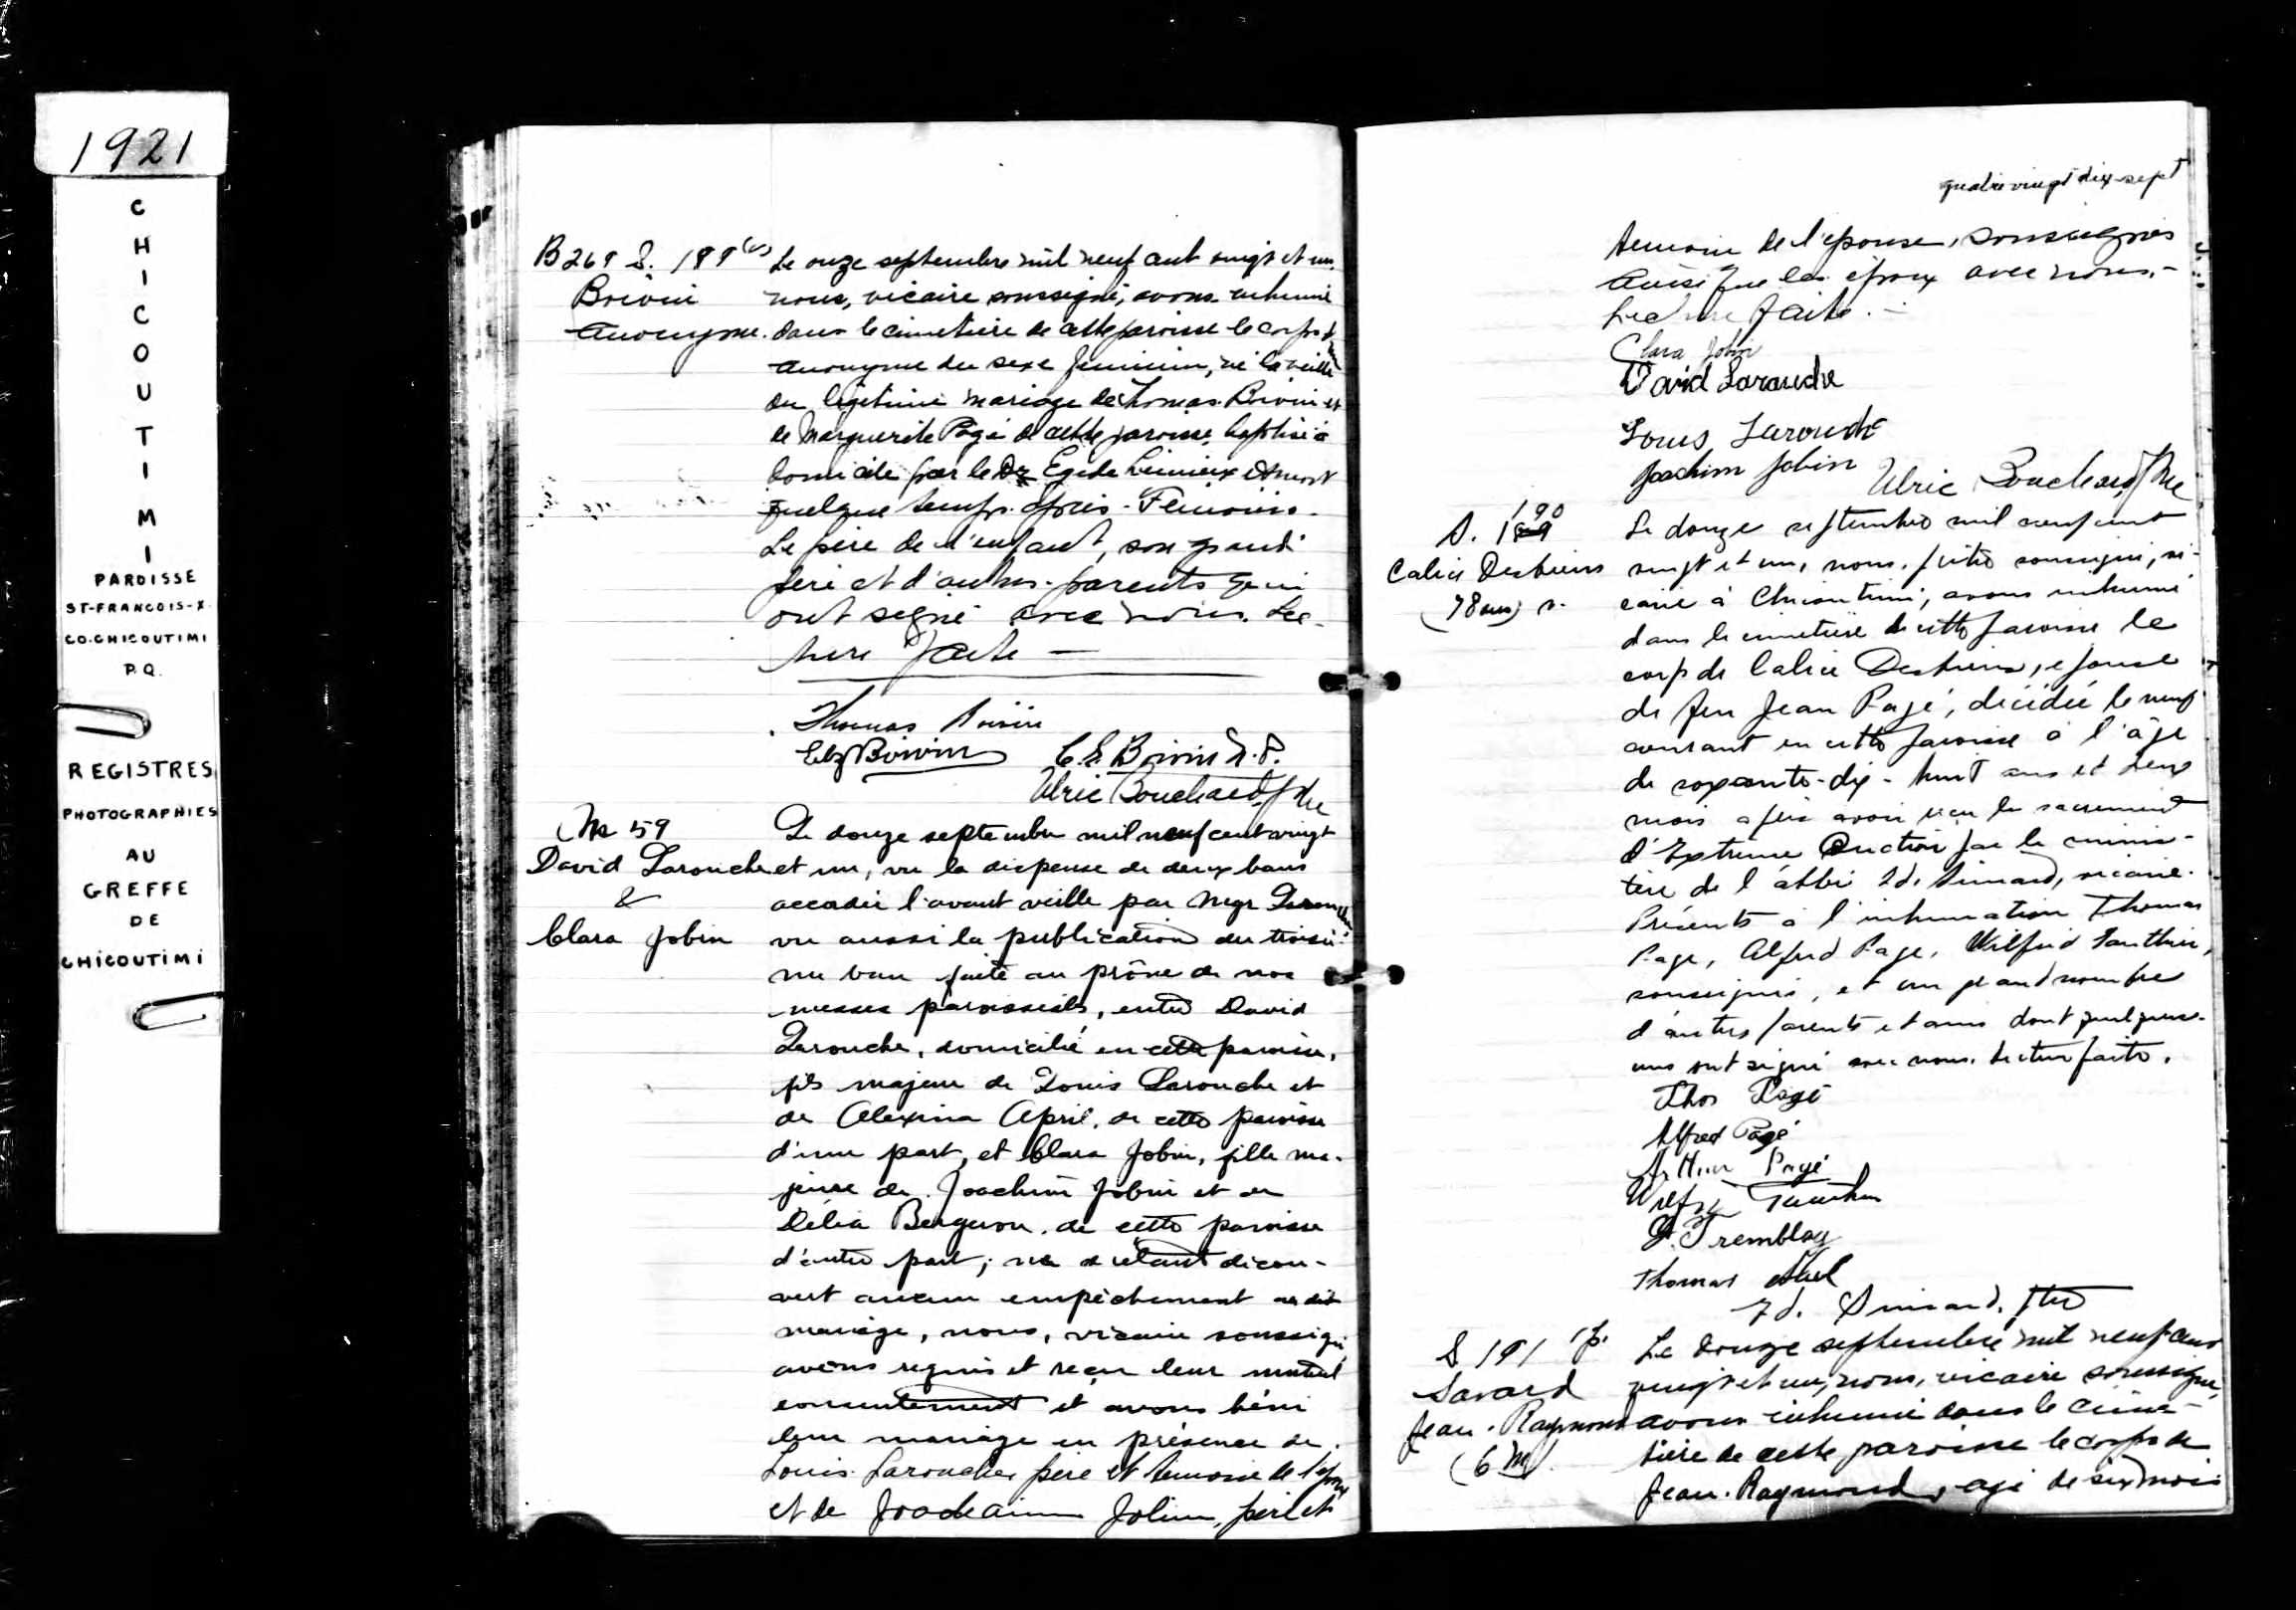 1921
CHICOUTIMI
PAROISSE
ST-FRANCOIS-X.
CO. CHICOUTIMI
P.Q.
REGISTRES
PHOTOGRAPHIES
AU
GREFFE
DE
CHICOUTIMI
B 269 S. 189
Boivin
Anonyme.
Le onze septembre mil neuf cent vingt et un,
nous, vicaire soussigné, avons inhumé
dans le cimetière de cette paroisse le corps d'un
anonyme du sexe feminin, né la veille
du légitime mariage de Thomas Boivin et
de Marguerite Pagé de cette paroisse, baptisé à
domicile par le Dr Egide Lemieux et mort
quelque temps après. Témoins.
Le père de l'enfant, son grand
père et d'autres parents qui
ont signé avec nous. Lec-
ture faite —
Thomas Boivin
Elz Boivin
C. E. Boivin
Ulric Bouchard, ptre
M 59
David Larouche
&
Clara Jobin
Le douze septembre mil neuf cent vingt
et un, vu la dispense de deux bans
accordée l'avant veille par Mgr
vu aussi la publication du troisiè-
me ban faite au prône de nos
messes paroissiales, entre David
Larouche, domicilié en cette paroisse,
fils majeur de Louis Larouche et
de Alexina April, de cette paroisse
d'une part, et Clara Jobin, fille ma-
jeure de Joachim Jobin et de
Délia Bergeron, de cette paroisse
d'autre part; ne s'étant décou-
vert aucun empêchement au dit
mariage, nous, vicaire soussigné,
avons requis et reçu leur mutuel
consentement et avons béni
leur mariage en présence de
Louis Larouche, père et témoin de l'époux
et de Joachim Jobin, père et
quatre vingt dix-sept
temoin de l'épouse, soussignés
ainsi que les époux avec nous. -
Lecture faite. -
Clara Jobin
David Larouche
Louis Larouche
Joachim Jobin
Ulric Bouchard, ptre
190
S. 189
Calice Desbiens
(78 ans)
Le douze septembre mil neuf cent
vingt et un, nous, prêtre soussigné, vi-
caire à Chicoutimi, avons inhumé
dans le cimetière de cette paroisse le
corps de Calice Desbiens, epouse
de feu Jean Pagé, décédée le neuf
courant en cette paroisse à l'âge
de soixante-dix-huit ans et deux
mois après avoir reçu le sacrement
d'Extrême Onction par le minis-
tère de l'abbé Ed. Simard, vicaire.
Présents à l'inhumation Thomas
Page, Alfred Page, Wilfrid Gauthier,
soussignés, et un grand nombre
d'autres parents et amis dont quelques-
uns ont signé avec nous. Lecture faite.
Thos Pagé
Alfred Pagé
Arthur Pagé
Wilfrid Gauthier
Tremblay
Thomas
Ed. Simard, ptre
S 191
Savard
Jean-Raymond
(6 m)
Le douze septembre mil neuf cent
vingt et un, nous, vicaire soussigné,
avons inhumé dans le cime-
tière de cette paroisse le corps de
Jean-Raymond, agé de six mois